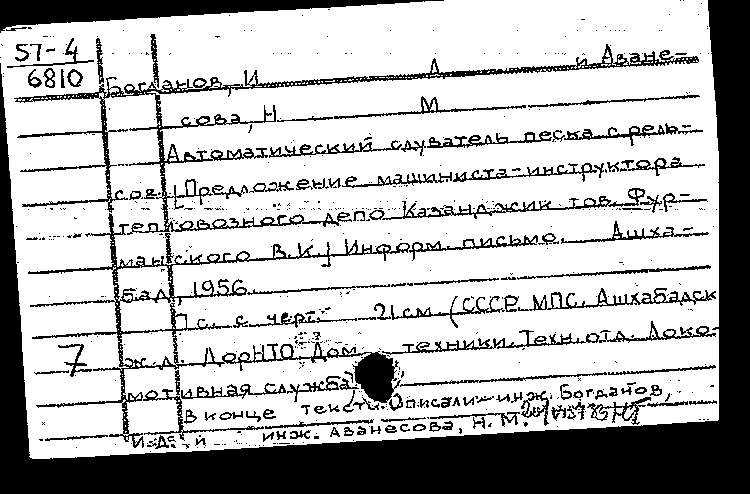 57-4
6810
Богданов, И Д и Аване-
сова, Н М
Автоматический сдуватель песка с рель-
сов. [Предложение машиниста-инструктора
тепловозного депо Казанджик тов. Фур-
манского В.К.] Информ. письмо. Ашха-
бад, 1956.
7 с. с черт. 21 см. (СССР. МПС. Ашхабадск
7
ж.д. ДорНТО. Дом техники. Техн. отд. Локо-
мотивная служба)
В конце текста: Описали инж. Богданов,
И.Д. и инж. Аванесова, Н.М.